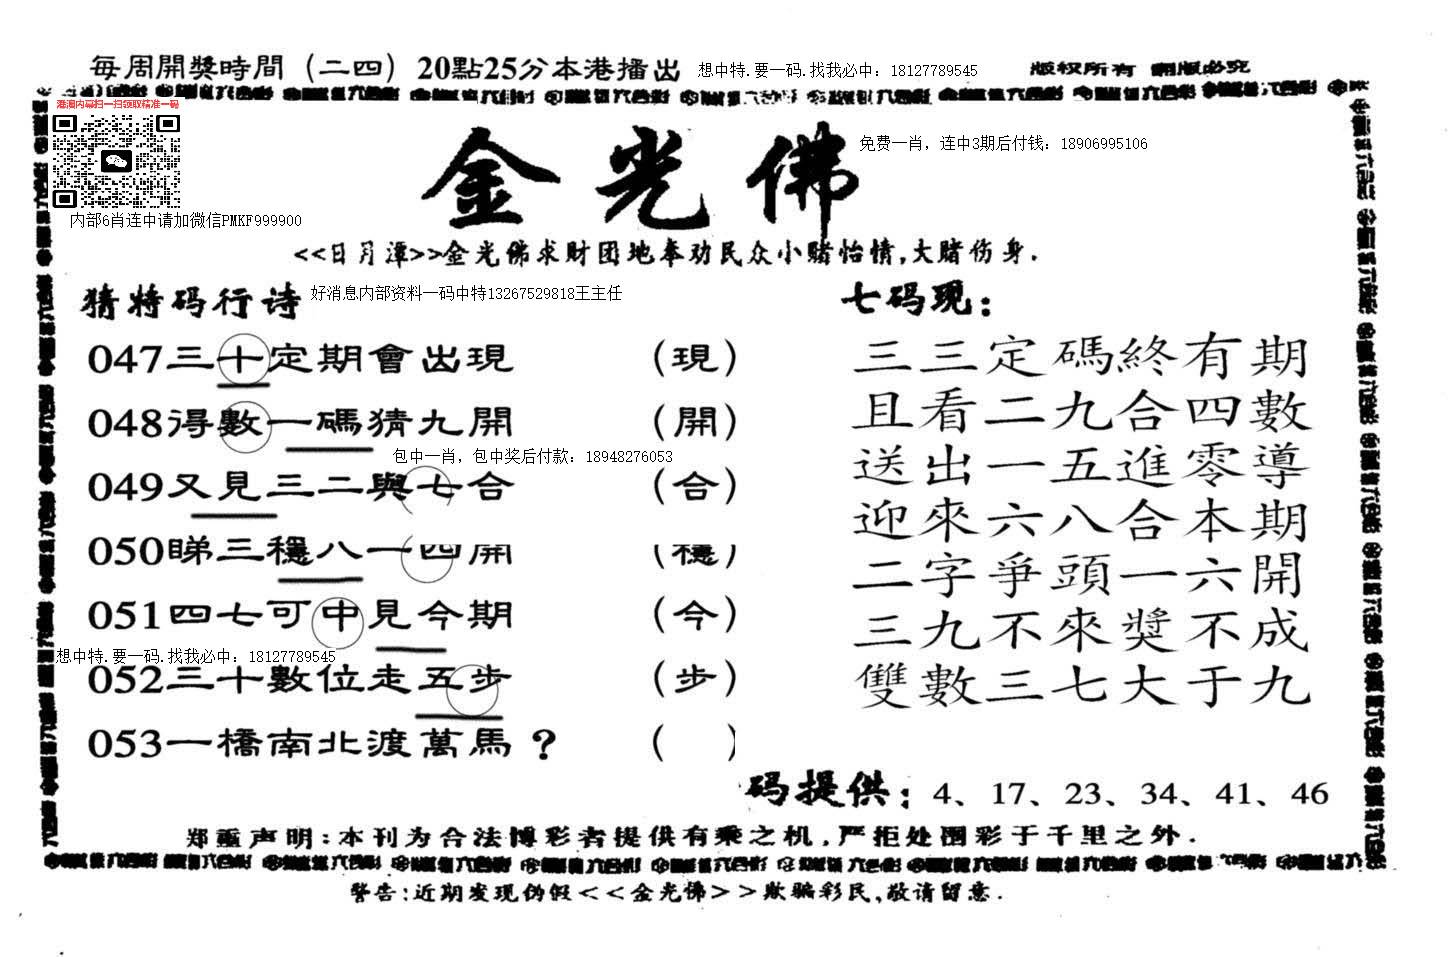 每周開獎時間（二四）20點25分本港播出
想中特.要一码.找我必中：18127789545
版权所有 翻版必究
港澳内幕扫一扫领取精准一码
金光佛
免费一肖，连中3期后付钱：18906995106
内部6肖连中请加微信PMKF999900
<<日月潭>>金光佛求财团地奉劝民众小赌怡情,大赌伤身.
猜特码行诗
好消息内部资料一码中特13267529818王主任
047三十定期會出現（現）
048得數一碼猜九開（開）
包中一肖，包中奖后付款：18948276053
049又見三二與七合（合）
050睇三穩八一四開（穩）
051四七可中見今期（今）
想中特.要一码.找我必中：18127789545
052三十數位走五步（步）
053一橋南北渡萬馬？（ ）
七码现：
三三定碼終有期
且看二九合四數
送出一五進零導
迎來六八合本期
二字爭頭一六開
三九不來獎不成
雙數三七大于九
码提供：4、17、23、34、41、46
郑重声明:本刊为合法博彩者提供有乘之机,严拒处圈彩于千里之外.
警告:近期发现伪假<<金光佛>>欺骗彩民,敬请留意.